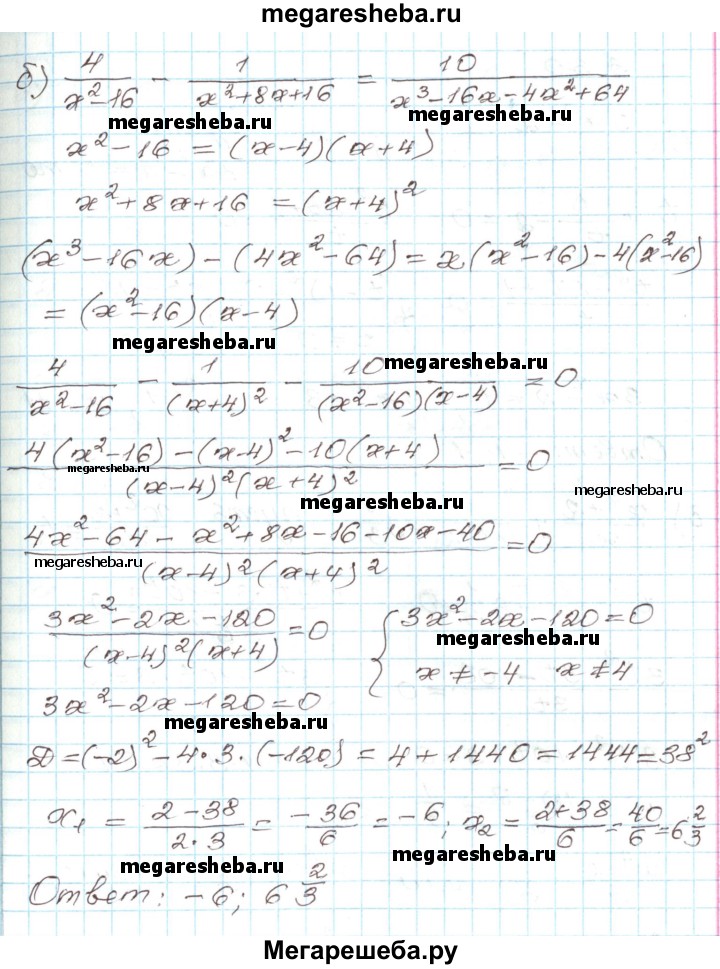 megaresheba.ru
б) 4/(x²-16) - 1/(x²+8x+16) = 10/(x³-16x-4x²+64)
megaresheba.ru megaresheba.ru
x²-16 = (x-4)(x+4)
x²+8x+16 = (x+4)²
(x³-16x)-(4x²-64) = x(x²-16)-4(x²-16)
= (x²-16)(x-4)
megaresheba.ru
4/(x²-16) - 1/(x+4)² - 10/((x²-16)(x-4)) = 0
megaresheba.ru
(4(x²-16)-(x-4)²-10(x+4))/((x-4)²(x+4)²) = 0
megaresheba.ru megaresheba.ru
(4x²-64-x²+8x-16-10x-40)/((x-4)²(x+4)²) = 0
megaresheba.ru megaresheba.ru
(3x²-2x-120)/((x-4)²(x+4)) = 0 { 3x²-2x-120=0
x ≠ -4 x ≠ 4
megaresheba.ru
3x²-2x-120=0
megaresheba.ru
D=(-2)²-4·3·(-120)=4+1440=1444=38²
megaresheba.ru megaresheba.ru
x₁ = (2-38)/(2·3) = -36/6 = -6; x₂ = (2+38)/6 = 40/6 = 6 2/3
megaresheba.ru megaresheba.ru
Ответ: -6; 6 2/3
Мегарешеба.ру